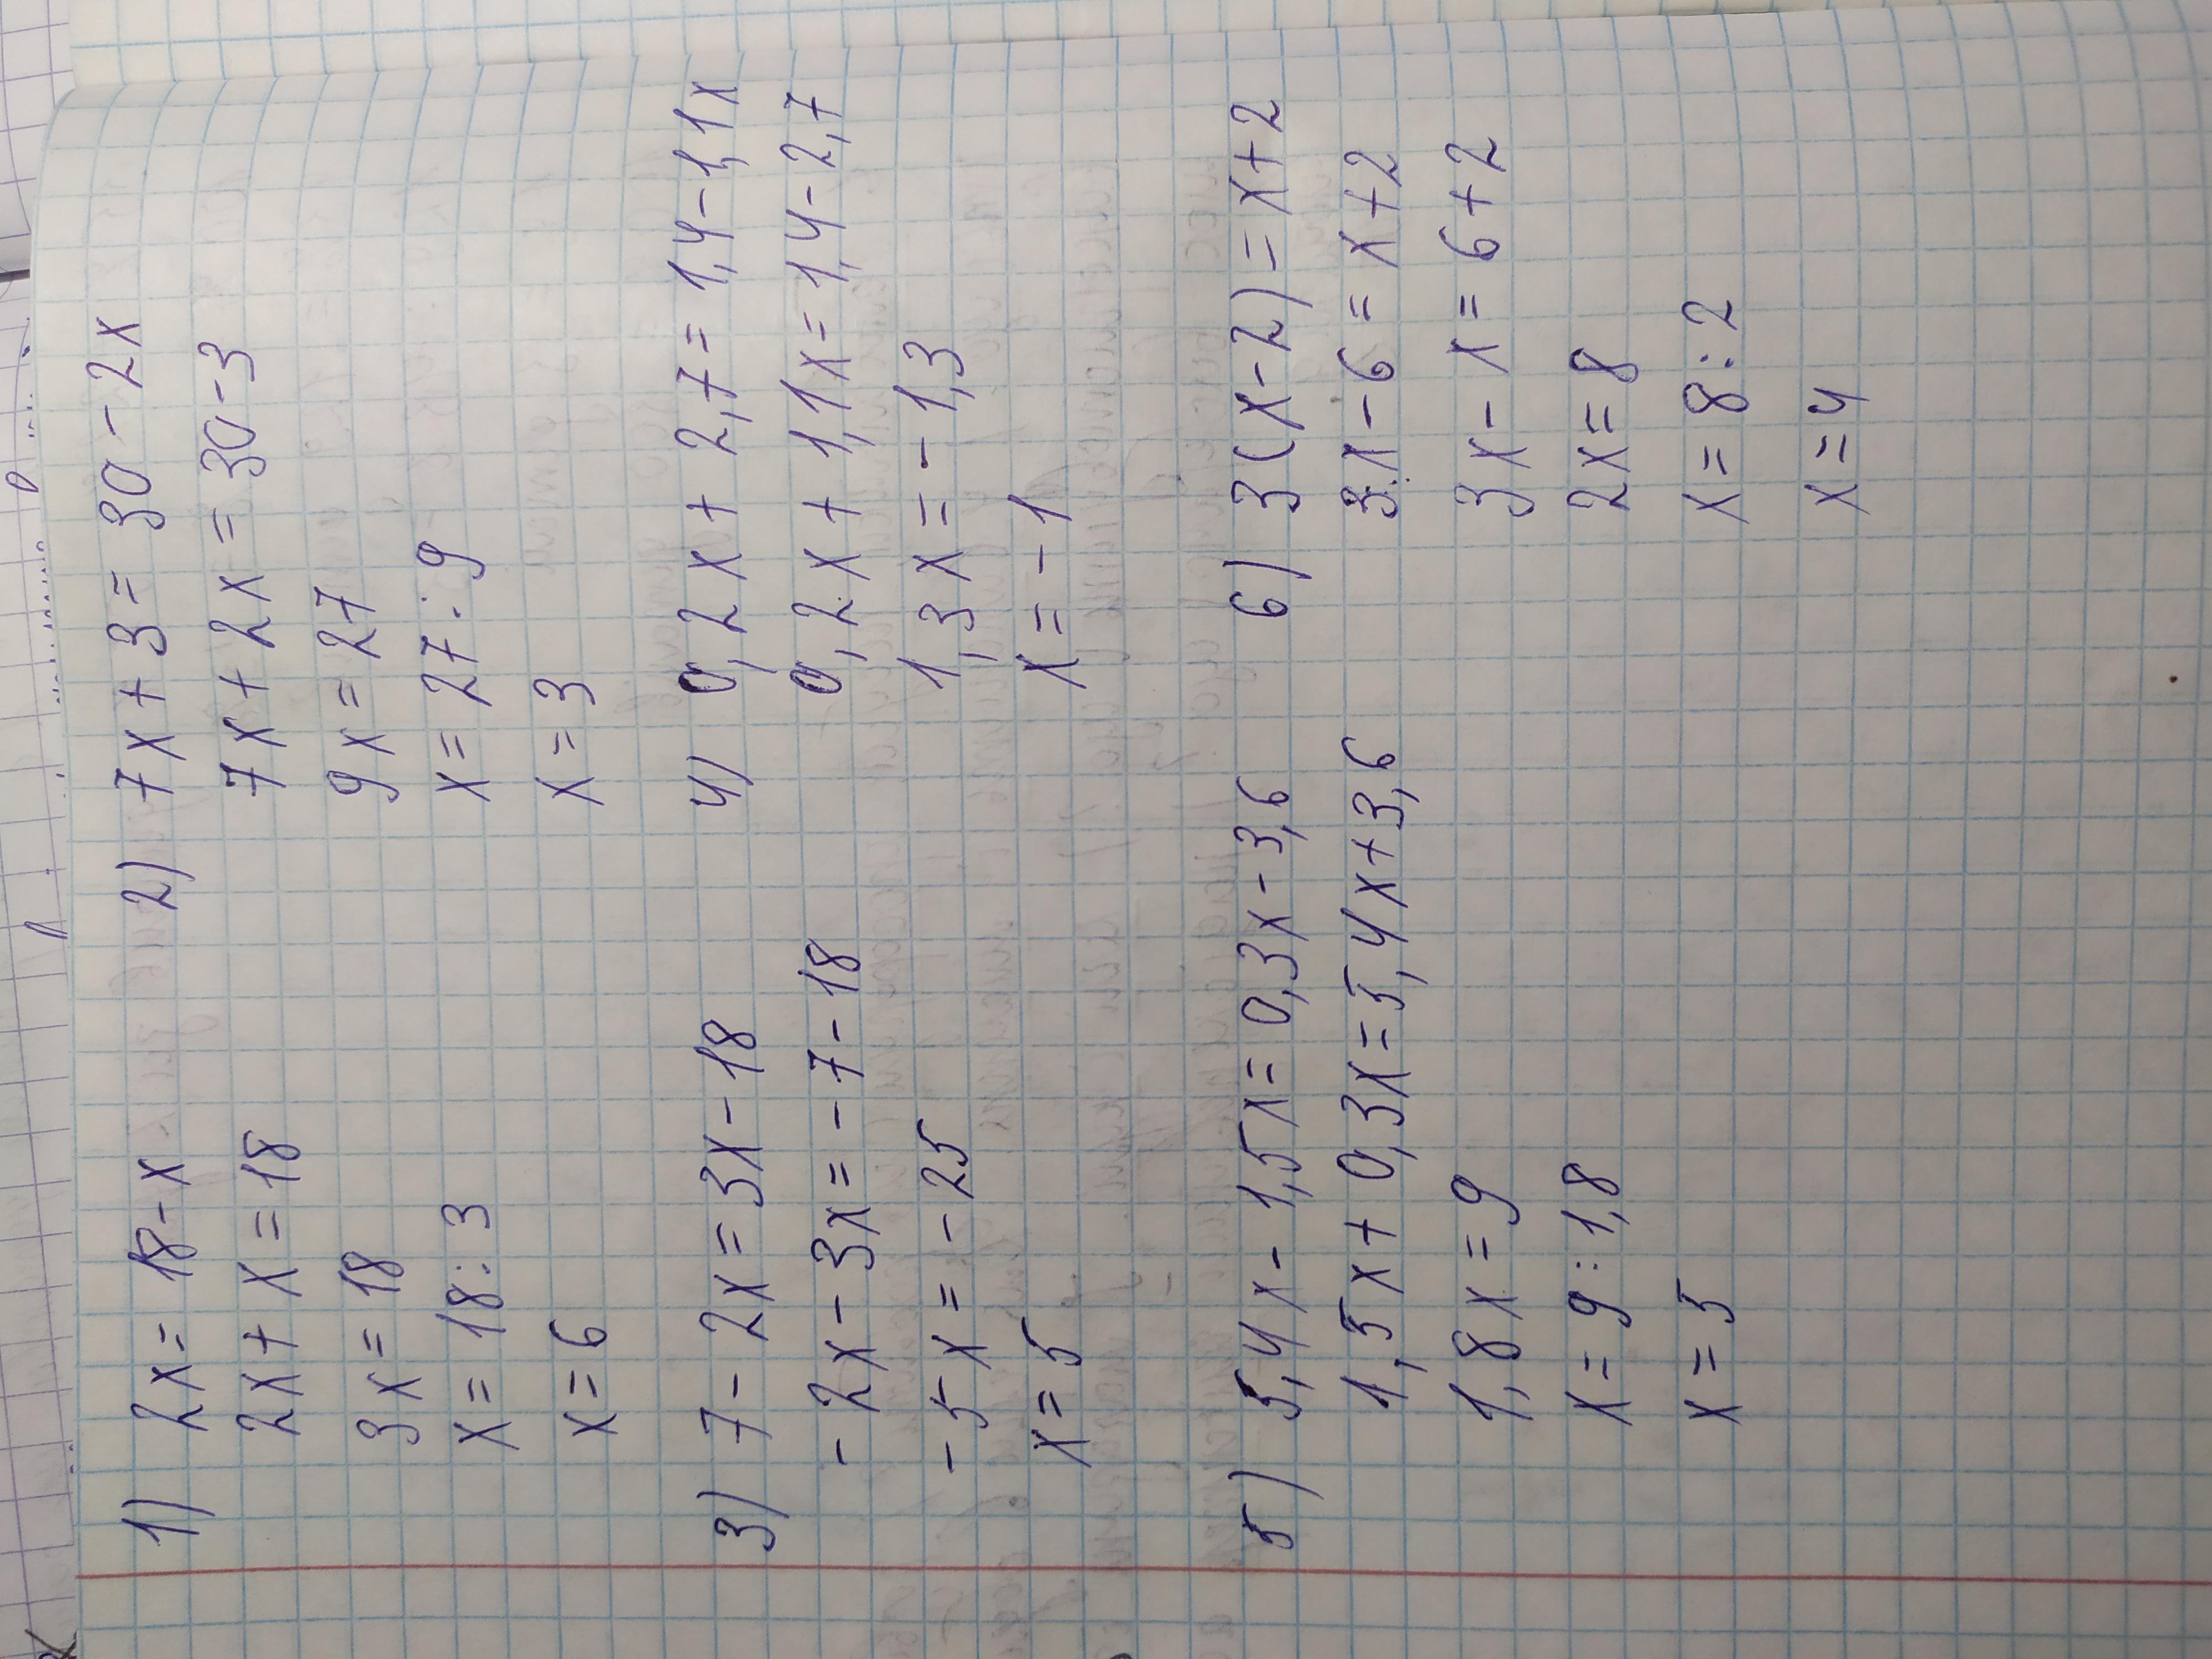 1) 2x = 18 - x
2x + x = 18
3x = 18
x = 18 : 3
x = 6
2) 7x + 3 = 30 - 2x
7x + 2x = 30 - 3
9x = 27
x = 27 : 9
x = 3
3) 7 - 2x = 3x - 18
- 2x - 3x = - 7 - 18
- 5x = - 25
x = 5
4) 0,2x + 2,7 = 1,4 - 1,1x
0,2x + 1,1x = 1,4 - 2,7
1,3x = - 1,3
x = - 1
5) 5,4x - 1,5x = 0,3x - 3,6
1,5x + 0,3x = 5,4x + 3,6
1,8x = 9
x = 9 : 1,8
x = 5
6) 3(x - 2) = x + 2
3x - 6 = x + 2
3x - x = 6 + 2
2x = 8
x = 8 : 2
x = 4